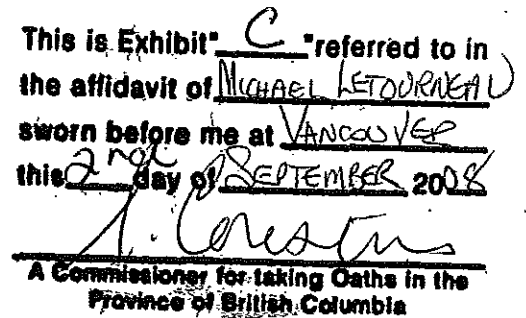 This is Exhibit "C" referred to in
the affidavit of MICHAEL LETOURNEAU
sworn before me at VANCOUVER
this 2nd day of SEPTEMBER 2008
A Commissioner for taking Oaths in the
Province of British Columbia